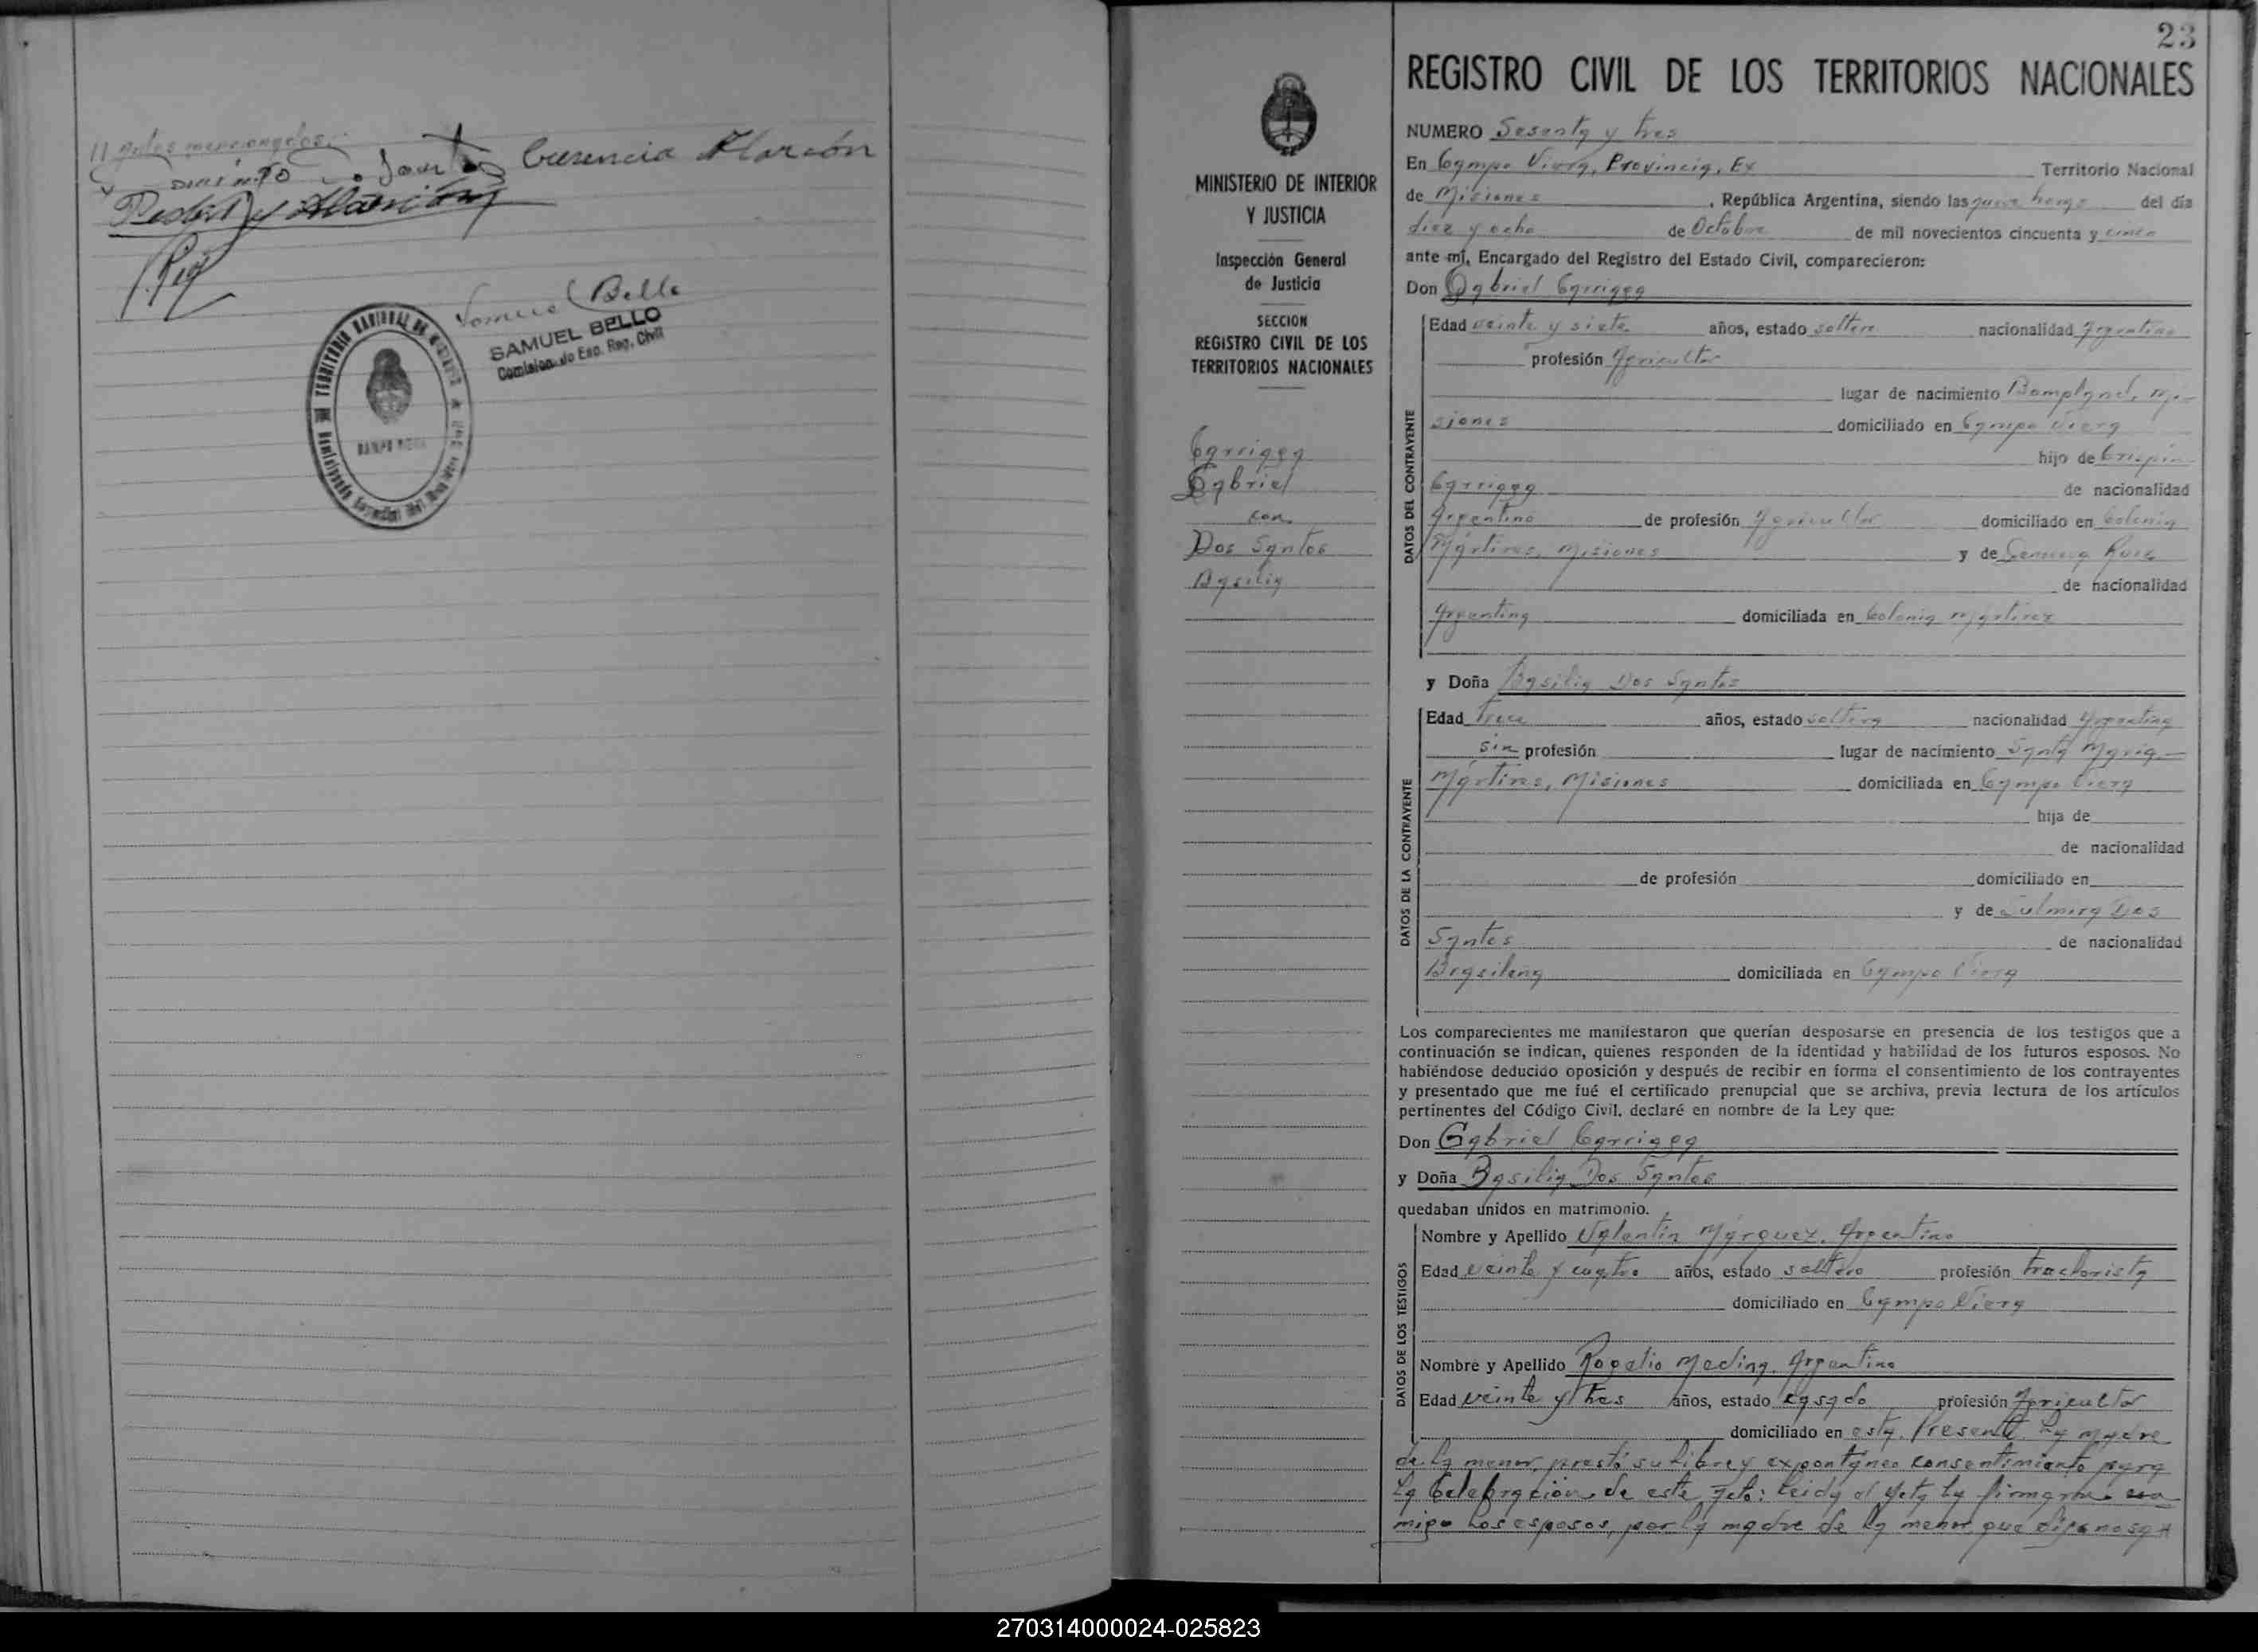 antes mencionados.
Santos Crecencia Alarcón
Pedro y Alarcón
Bello
SAMUEL BELLO
Comision. do Esp. Reg. Civil
23
REGISTRO CIVIL DE LOS TERRITORIOS NACIONALES
MINISTERIO DE INTERIOR
Y JUSTICIA
Inspección General
de Justicia
SECCION
REGISTRO CIVIL DE LOS
TERRITORIOS NACIONALES
Carrigeg
Gabriel
con
Dos Santos
Basilia
NUMERO Sesenta y tres
En Campo Viera, Provincia, Ex Territorio Nacional
de Misiones, República Argentina, siendo las horas del día
diez y ocho de Octubre de mil novecientos cincuenta y cinco
ante mí, Encargado del Registro del Estado Civil, comparecieron:
Don Gabriel
DATOS DEL CONTRAYENTE
Edad veinte y siete años, estado soltero nacionalidad Argentino
profesión Agricultor
lugar de nacimiento Bompland, Mi-
siones domiciliado en Campo Viera
hijo de Crispin
de nacionalidad
Argentino de profesión Agricultor domiciliado en Colonia
Mártires, Misiones y de Ruiz
de nacionalidad
Argentina domiciliada en Colonia Mártires
y Doña Basilia Dos Santos
DATOS DE LA CONTRAYENTE
Edad Trece años, estado soltera nacionalidad Argentina
sin profesión lugar de nacimiento Santa María
Mártires, Misiones domiciliada en Campo Viera
hija de
de nacionalidad
de profesión domiciliado en
y de Dos
Santos de nacionalidad
Brasileña domiciliada en Campo Viera
Los comparecientes me manifestaron que querían desposarse en presencia de los testigos que a
continuación se indican, quienes responden de la identidad y habilidad de los futuros esposos. No
habiéndose deducido oposición y después de recibir en forma el consentimiento de los contrayentes
y presentado que me fué el certificado prenupcial que se archiva, previa lectura de los artículos
pertinentes del Código Civil, declaré en nombre de la Ley que:
Don Gabriel
y Doña Basilia Dos Santos
quedaban unidos en matrimonio.
DATOS DE LOS TESTIGOS
Nombre y Apellido Valentín Márquez, Argentino
Edad veinte y cuatro años, estado soltero profesión tractorista
domiciliado en Campo Viera
Nombre y Apellido Rogelio Medina, Argentino
Edad veinte y tres años, estado casado profesión Agricultor
domiciliado en esta. Presente la madre
de la menor, prestó su libre y expontáneo consentimiento para
la Celebración de este acto: leida el acta la firmaron con
migo los esposos, por la madre de la menor que dijo no sa
270314000024-025823